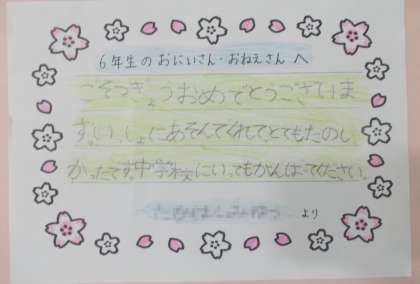 6年生のおにいさん・おねえさんへ
ごそつぎょうおめでとうございま
す。いっしょにあそんでくれて、とてもたのし
かったです。中学校にいってもがんばってください。
より